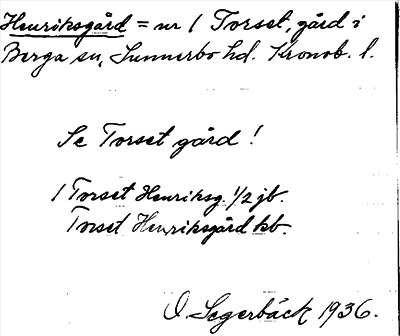 Henriksgård = nr 1 Torset, gård i
Berga sn, Sunnerbo hd. Kronob. l.
Se Torset gård!
1 Torset Henriksg. 1/2 jb.
Torset Henriksgård kb.
O. Segerbäck 1936.